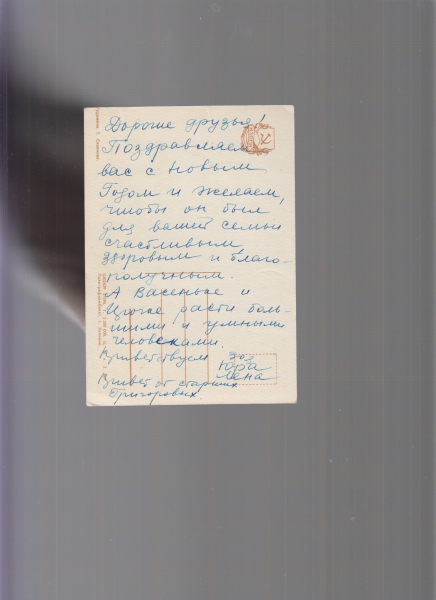 Дорогие друзья!
Поздравляем
вас с Новым
Годом и желаем,
чтобы он был
для вашей семьи
счастливым,
здоровым и благо-
получным.
А Васеньке и
расти боль-
шими и умными
человеками.
Приветствуем
Юра
Лена
Привет от старших
Григоровых.